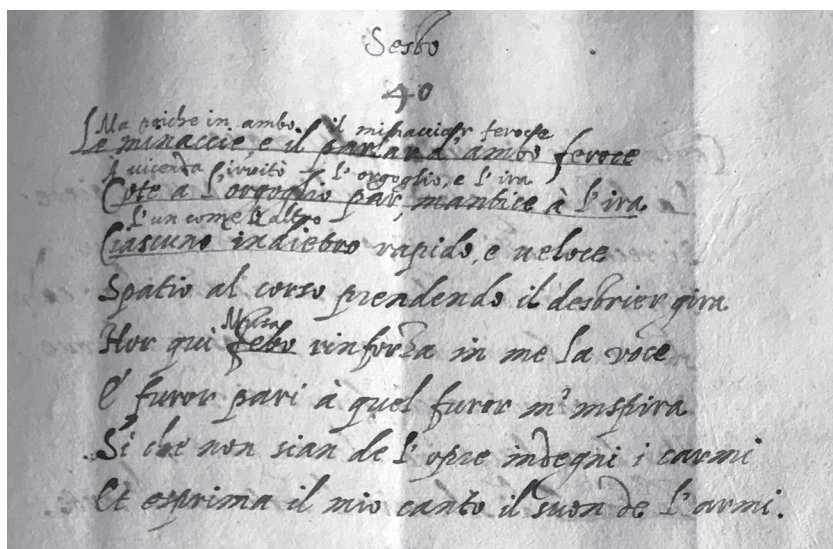 Sesto
40
Ma poiche in ambo il minacciar feroce
Le minaccie, e il parlar d'ambo feroce
A vicenda irritò l'orgoglio, e l'ira
Cote a l'orgoglio par, mantice à l'ira
L'un come l'altro
Ciascuno indietro rapido, e veloce
Spatio al corso prendendo il destrier gira
Musa
Hor qui febo rinforza in me la voce
E furor pari à quel furor m'inspira
Si che non sian de l'opre indegni i carmi
Et esprima il mio canto il suon de l'armi.